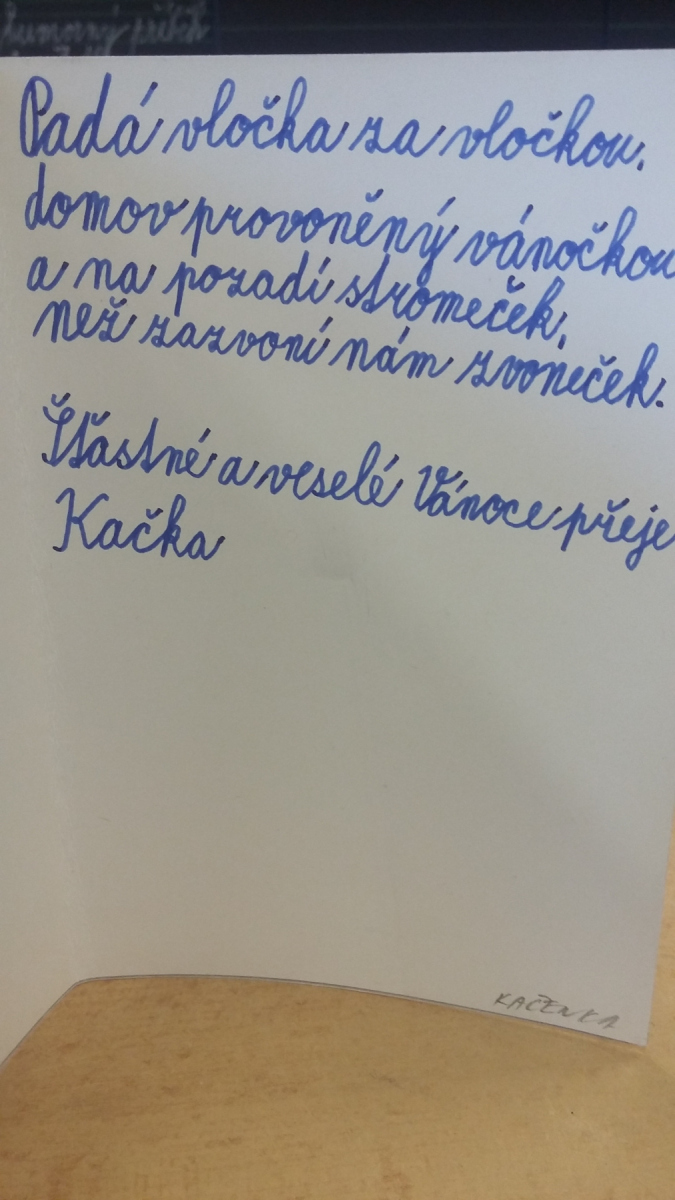 humorný příběh
Padá vločka za vločkou,
domov provoněný vánočkou
a na pozadí stromeček,
než zazvoní nám zvoneček.
Šťastné a veselé Vánoce přeje
Kačka
KAČENKA